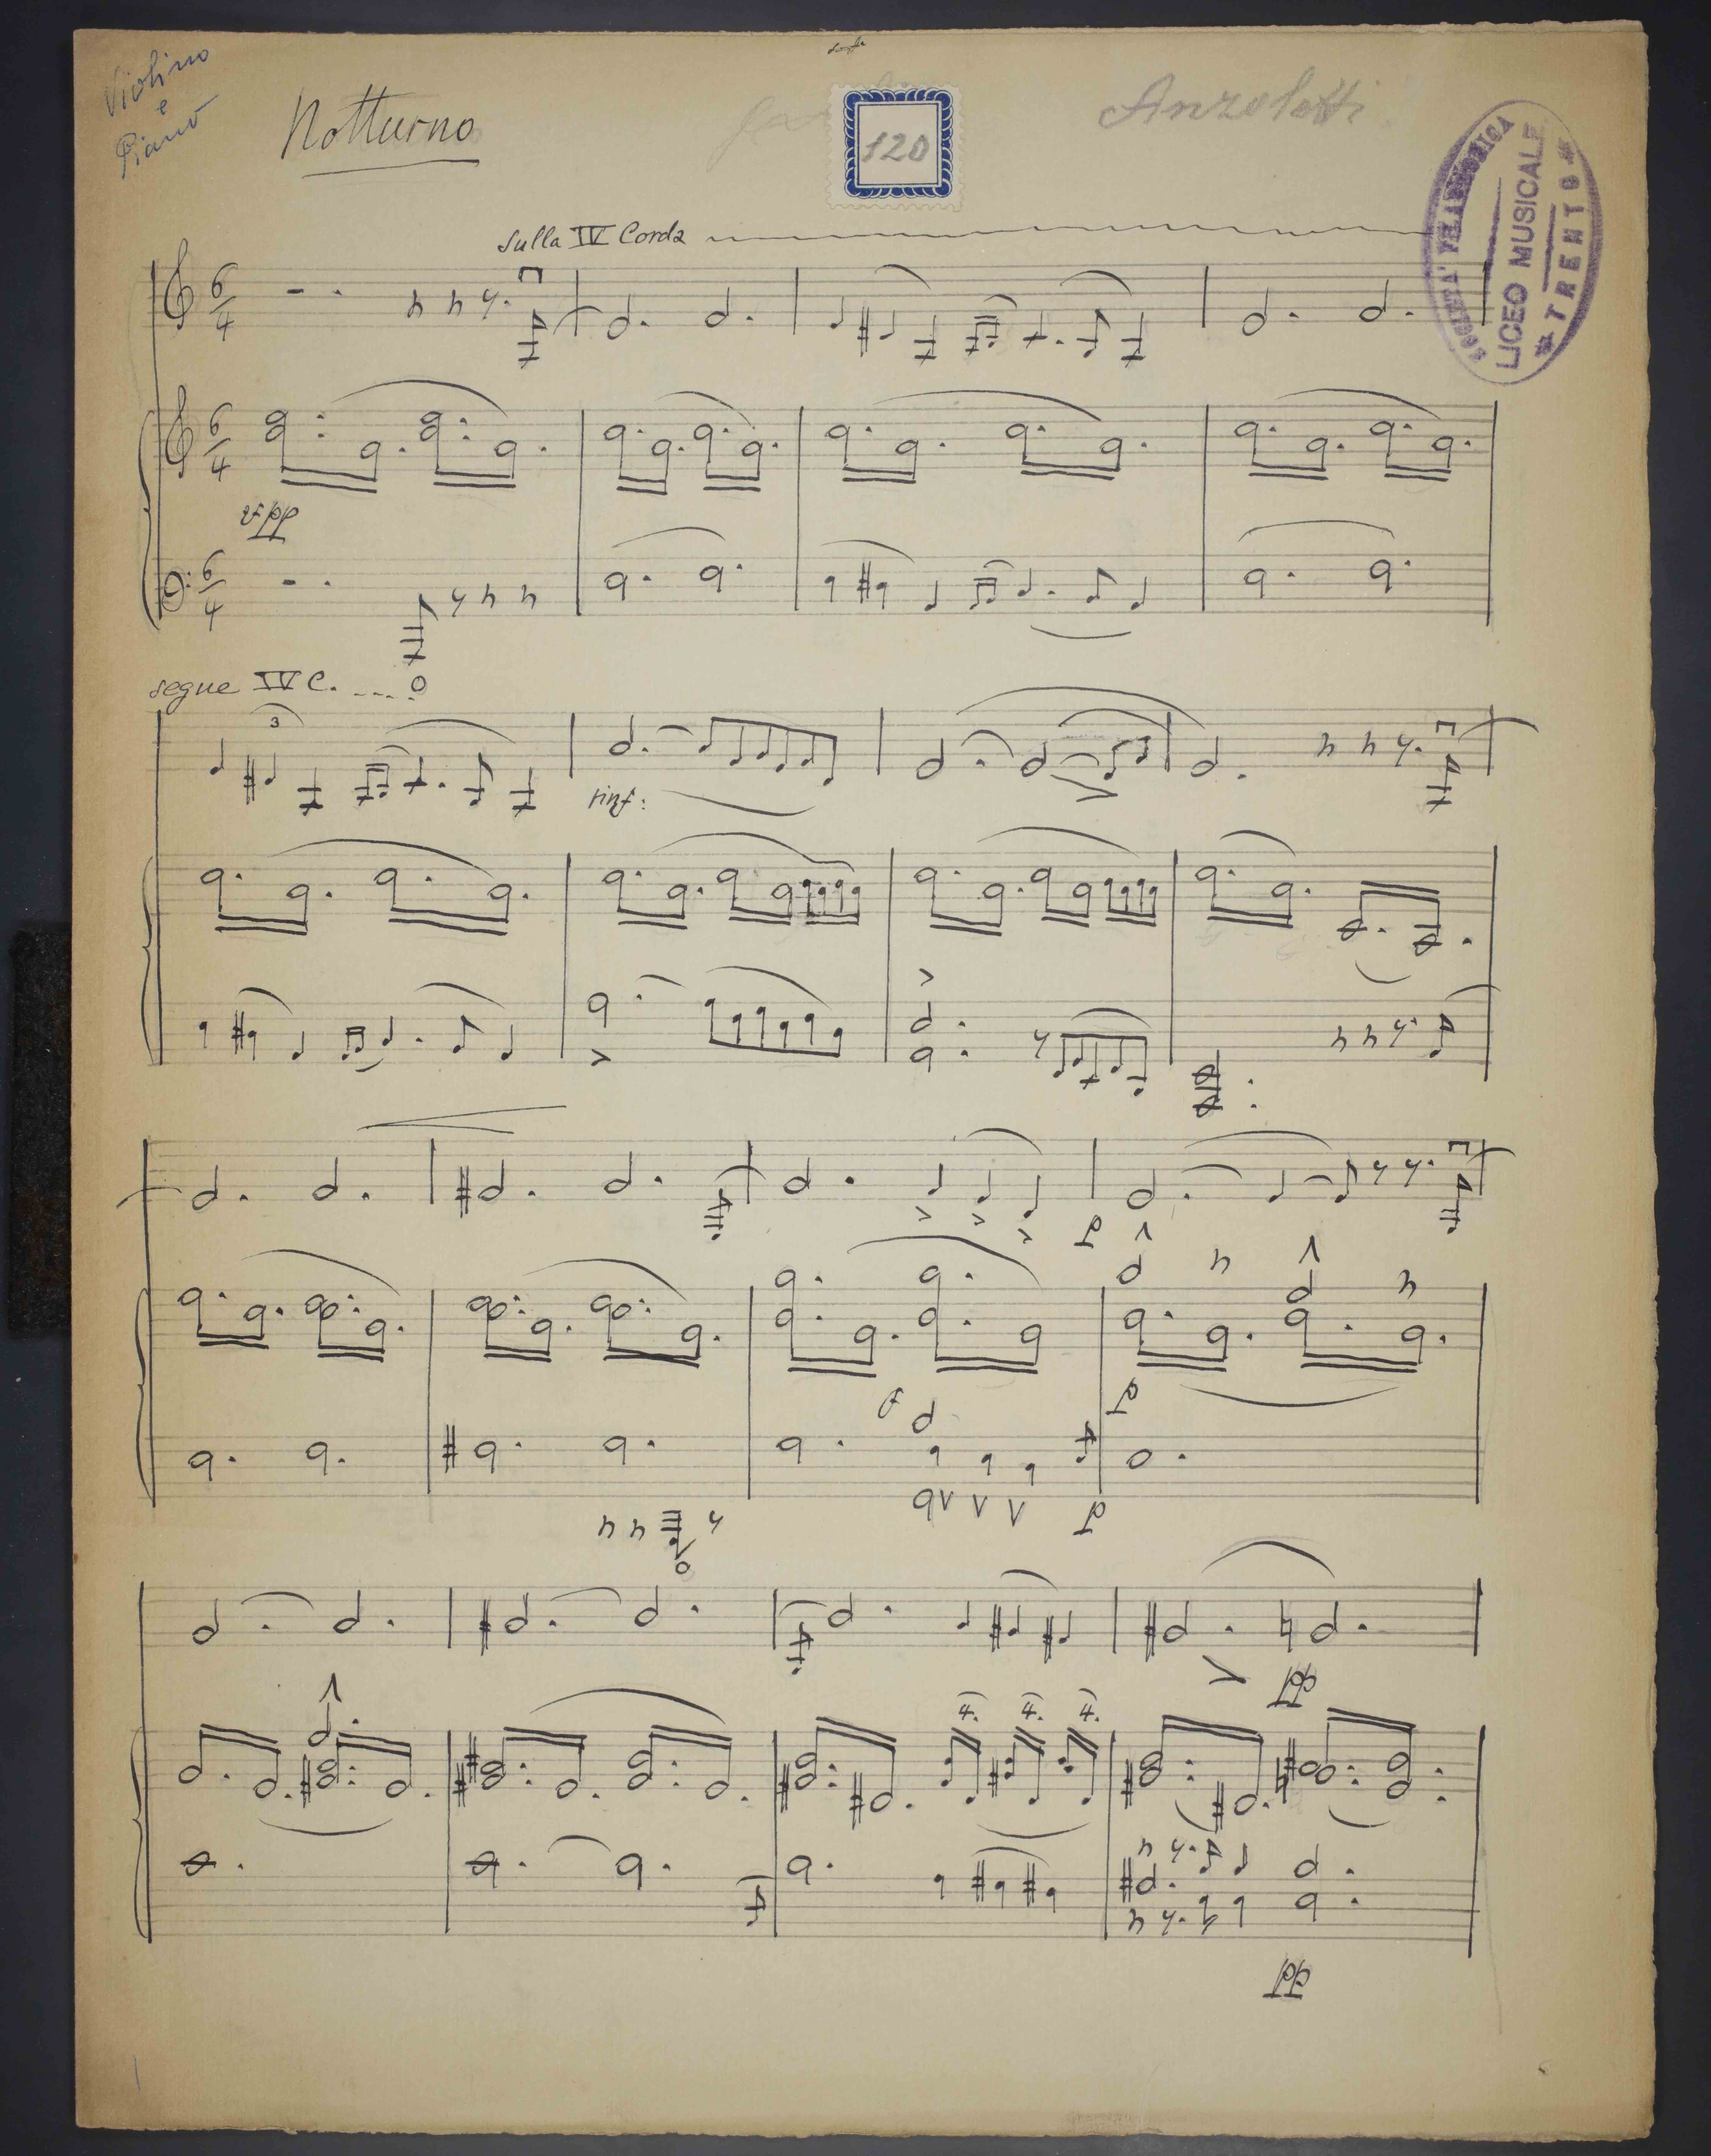 Violino
e
Piano
Notturno
120
Anzoletti
SOCIETA' FILARMONICA
LICEO MUSICALE
* TRENTO *
Sulla IV Corda
6
4
6
4
pp
6
4
segue IV C. ---- o
3
rinf:
p
f
p
p
pp
4. 4. 4.
pp